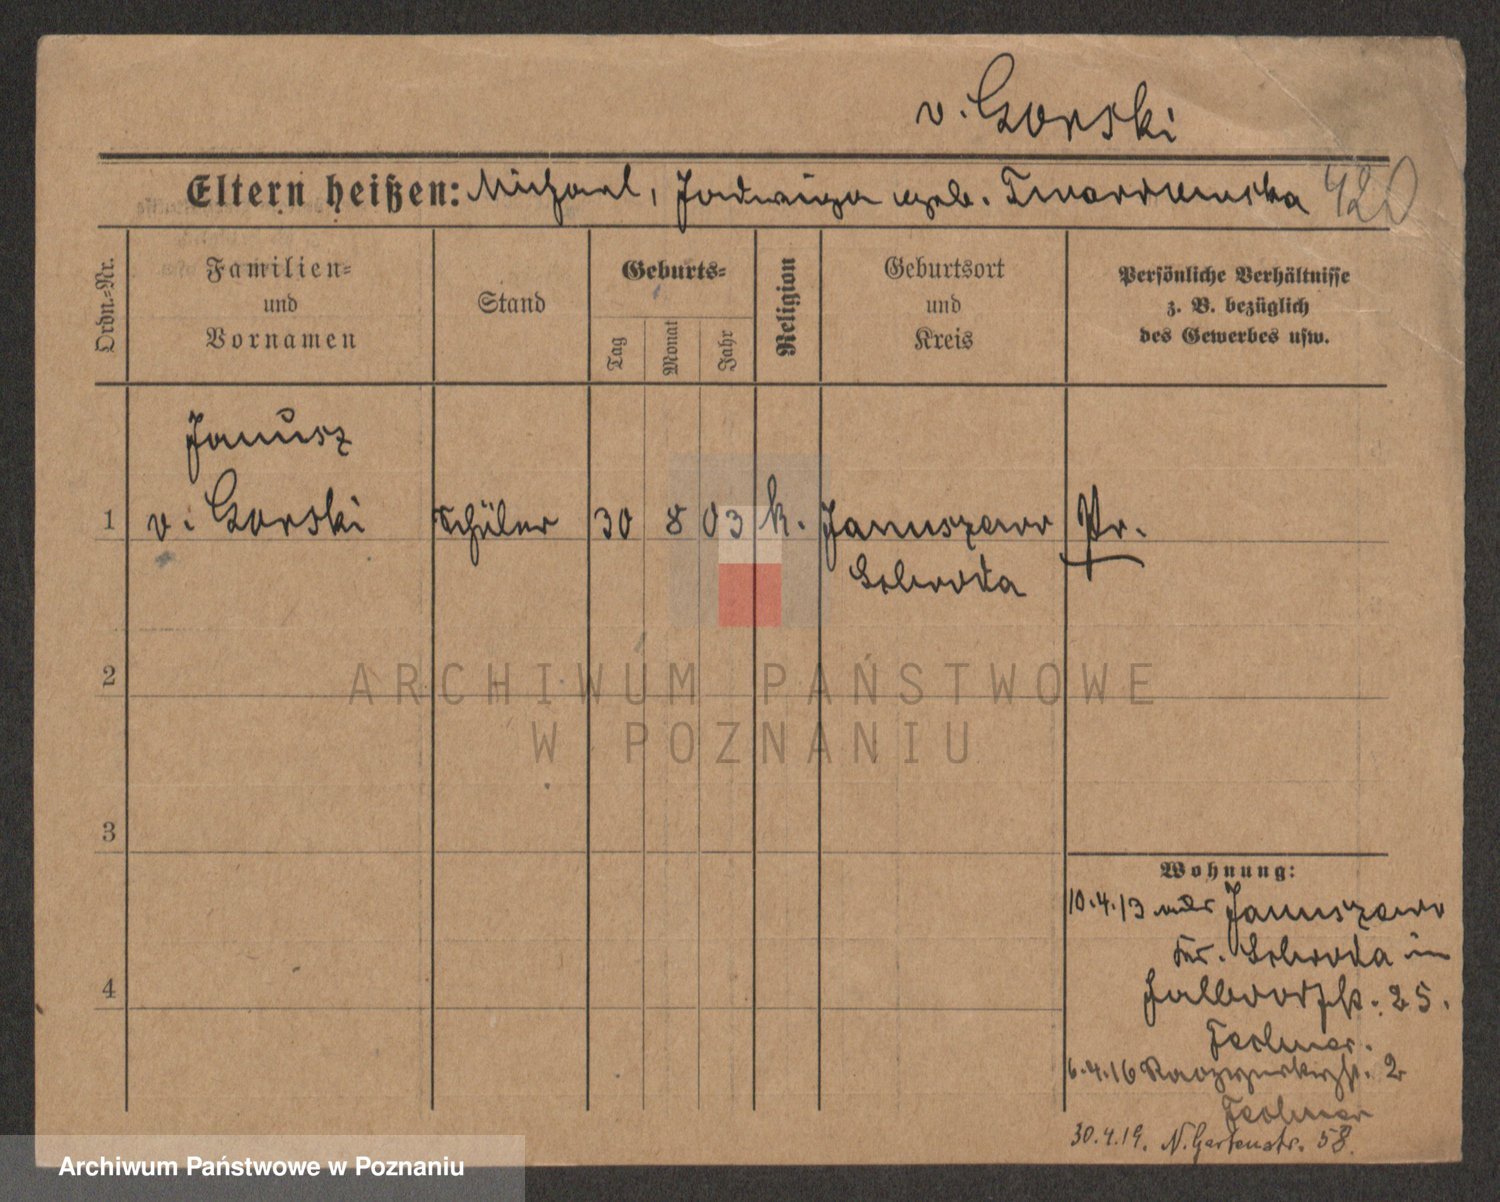 v. Gorski
Eltern heißen: Michael, Jadwiga geb. Twardowska 420
Ordn.-Nr.
Familien-
und
Vornamen
Stand
Geburts-
Tag
Monat
Jahr
Religion
Geburtsort
und
Kreis
Persönliche Verhältnisse
z. B. bezüglich
des Gewerbes usw.
Janusz
1 v. Gorski Schüler 30 8 03 k. Januszewo Pr.
Schroda
2
3
4
Wohnung:
10.4.13 aus Januszewo
Kr. Schroda in
25.
6.4.16 2
30.4.19. N. Gartenstr. 58.
ARCHIWUM PAŃSTWOWE
W POZNANIU
Archiwum Państwowe w Poznaniu